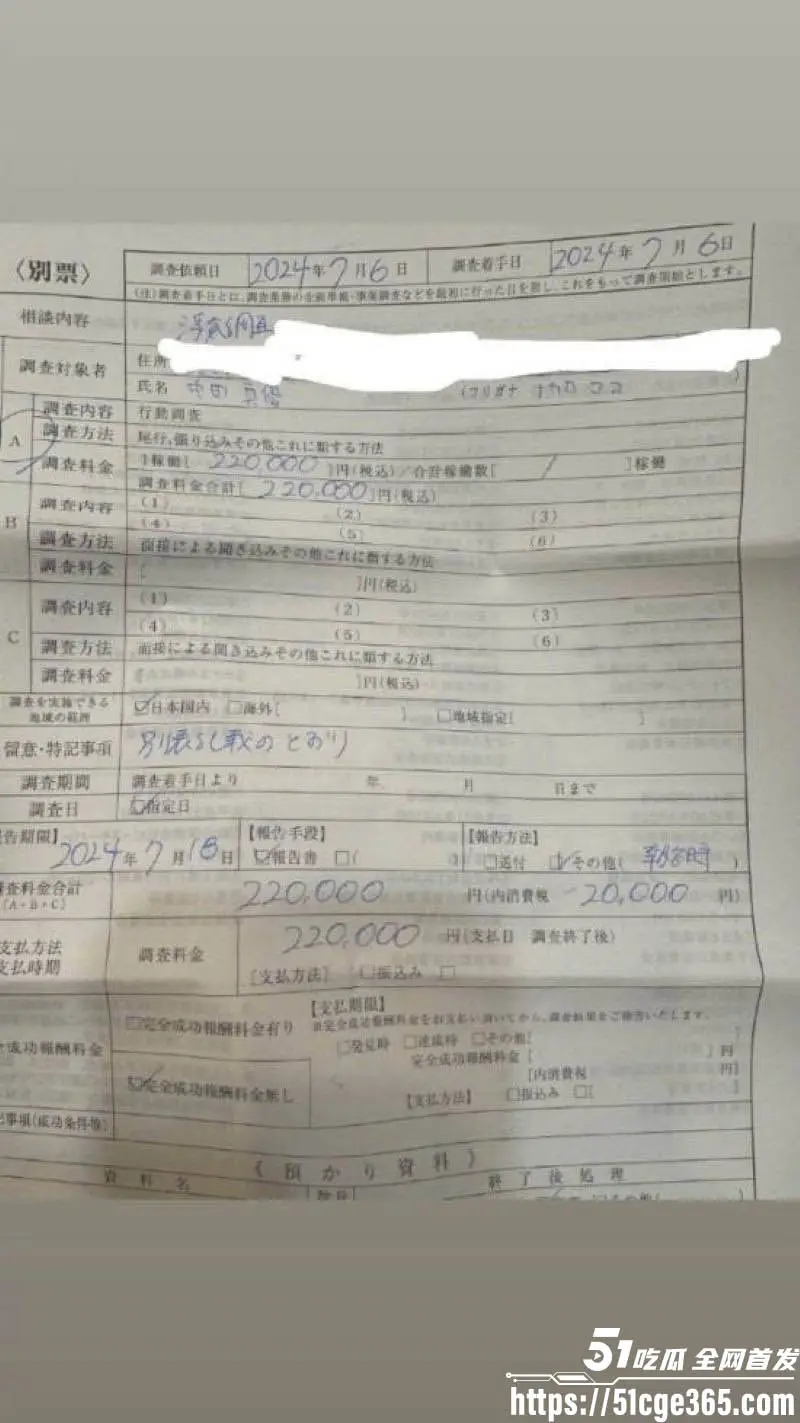 〈別票〉
調査依頼日 2024年7月6日 調査着手日 2024年7月6日
(注)調査着手日とは、調査業務の企画準備・事前調査などを最初に行った日を指し、これをもって調査開始とします。
相談内容 浮気調査
調査対象者 住所
氏名 (フリガナ ナカタ ココ
A 調査内容 行動調査
調査方法 尾行、張り込みその他これに類する方法
調査料金 1稼働[ 220,000 ]円(税込)/合計稼働数[ / ]稼働
調査料金合計[ 220,000 ]円(税込)
B 調査内容 (1) (2) (3)
(4) (5) (6)
調査方法 面接による聞き込みその他これに類する方法
調査料金 [ ]円(税込)
C 調査内容 (1) (2) (3)
(4) (5) (6)
調査方法 面接による聞き込みその他これに類する方法
調査料金 [ ]円(税込)
調査を実施できる
地域の範囲 ☑日本国内 □海外[ ] □地域指定[ ]
留意・特記事項 別表記載のとおり
調査期間 調査着手日より 年 月 日まで
調査日 ☑指定日
報告期限】 2024年7月18日 【報告手段】 ☑報告書 □( ) 【報告方法】 □送付 ☑その他( )
査料金合計 220,000 円(内消費税 20,000 円)
(A+B+C)
支払方法
支払時期 調査料金 220,000 円(支払日 調査終了後)
[支払方法] □振込み □
成功報酬料金 □完全成功報酬料金有り 【支払期限】
※完全成功報酬料金をお支払い頂いてから、調査結果をご報告いたします。
□発見時 □達成時 □その他[ ]
完全成功報酬料金[ ]円
[内消費税 円]
☑完全成功報酬料金無し 【支払方法】 □振込み □[ ]
記事項(成功条件等)
《預かり資料》
資料名 終了後処理
51吃瓜 全网首发
https://51cge365.com